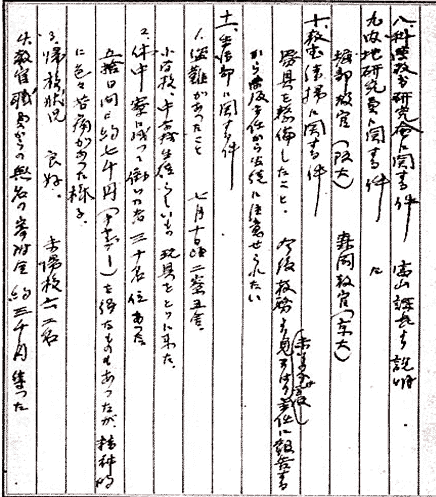 八、科学教育研究会に関する件 高山課長より説明
九、内地研究員に関する件 に
堀部教官(阪大) 森岡教官(京大)
十、教室清掃に関する件
器具を整備したこと。今後教務より見てはり主任に報告する
から学級主任から生徒に注意せられたい
十一、生活部に関する件
1、盗難があったこと 七月十日頃二寮五舎、
小学校、中学校生徒らしいもの玩具をとりに来た。
2、休中寮に残って働いた者三十名位あった。
五拾日間に約七千円()を得たものもあったが、精神的
に色々苦痛があった様子。
3、帰校状況 良好、 未帰校六二名
4、教官職員からの無名の寄附金約三千円集った